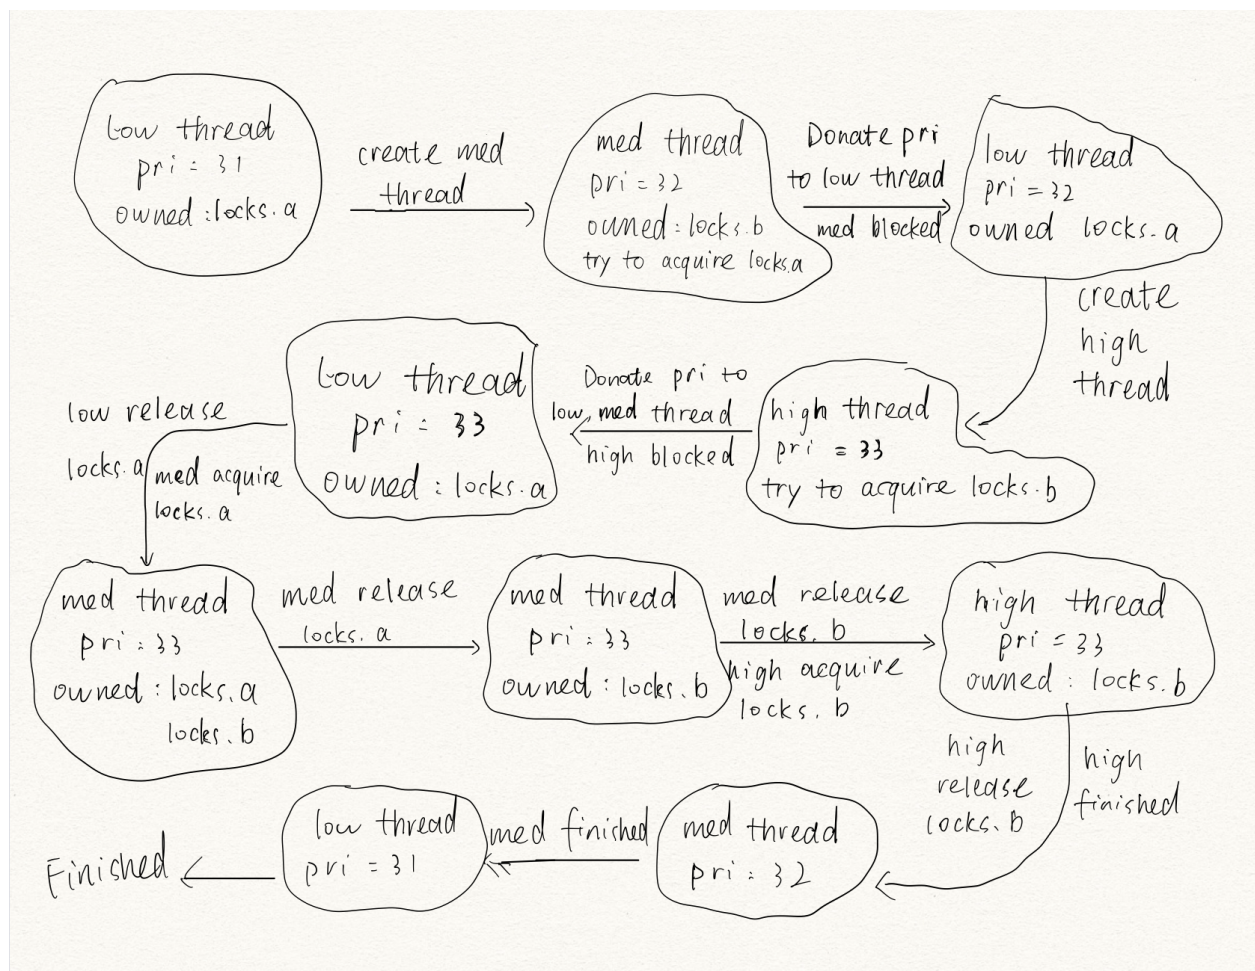 Low thread
pri = 31
owned : locks.a
create med
thread
med thread
pri = 32
owned : locks.b
try to acquire locks.a
Donate pri
to low thread
med blocked
low thread
pri = 32
owned locks.a
create
high
thread
high thread
pri = 33
try to acquire locks.b
Donate pri to
low, med thread
high blocked
Low thread
pri : 33
owned : locks.a
low release
locks.a
med acquire
locks.a
med thread
pri : 33
owned : locks.a
locks.b
med release
locks.a
med thread
pri : 33
owned : locks.b
med release
locks.b
high acquire
locks.b
high thread
pri = 33
owned : locks.b
high
release
locks.b
high
finished
med thread
pri : 32
med finished
low thread
pri = 31
Finished